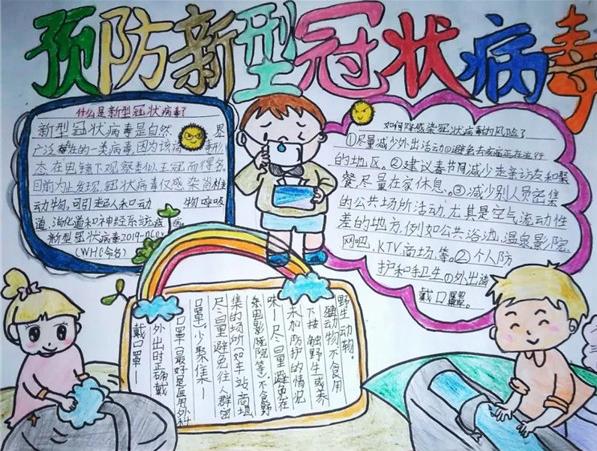 预防新型冠状病毒
什么是新型冠状病毒?
新型冠状病毒是自然界
广泛存在的一类病毒因为该病毒形
态在电镜下观察类似王冠而得名
目前为止发现,冠状病毒仅感染脊椎
动物,可引起人和动物呼吸
道、消化道和神经系统疾病
新型冠状病毒2019-nCoV
(WHO命名)
如何降感染冠状病毒的风险?
①尽量减少外出活动避免去疫病正在流行
的地区。②建议春节减少走亲访友和聚
餐尽量在家休息。③减少到人员密集
的公共场所活动,尤其是空气流动性
差的地方,例如公共浴池、温泉影院
网吧、KTV商场等。②个人防
护和手卫生の外出请
戴口罩。
野生动物。
健动物不食用
下接触野生或养
未加防护的情况
味一尽量避免在
条电影院等,不食野
集的场所如车站商场
尽量避免往人群密
口罩,少聚集一
口罩最好是医用外科
外出时正确戴
戴口罩一